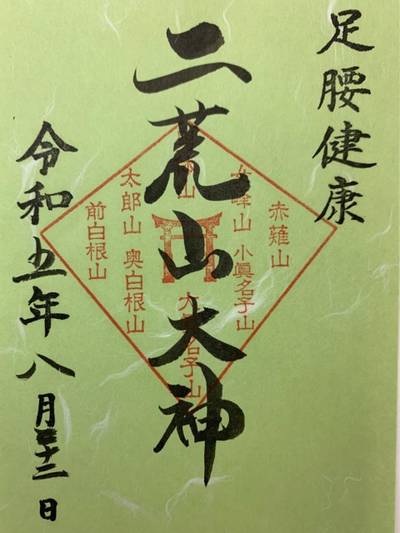 足腰健康
二荒山大神
令和五年八月二十三日
赤薙山
女峰山
小眞名子山
山
大
名子山
太郎山
奥白根山
前白根山